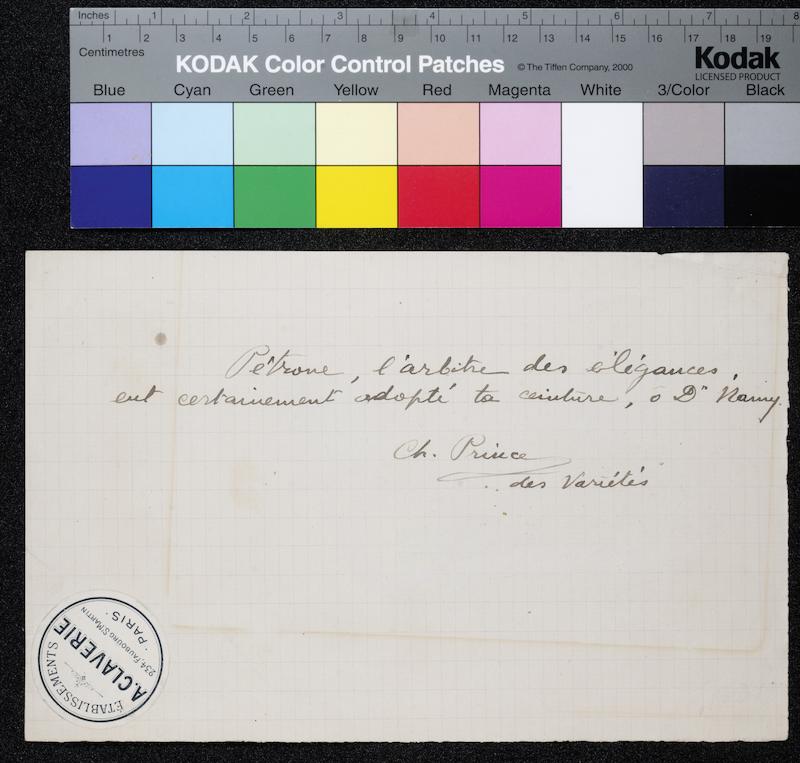 Inches 1 2 3 4 5 6 7 8
Centimetres 1 2 3 4 5 6 7 8 9 10 11 12 13 14 15 16 17 18 19
KODAK Color Control Patches © The Tiffen Company, 2000 Kodak
LICENSED PRODUCT
Blue Cyan Green Yellow Red Magenta White 3/Color Black
Pétrone, l'arbitre des élégances,
eut certainement adopté ta ceinture, ô Dr Namy.
Ch. Prince
des Variétés
ÉTABLISSEMENTS
A. CLAVERIE
234, FAUBOURG St MARTIN
· PARIS ·